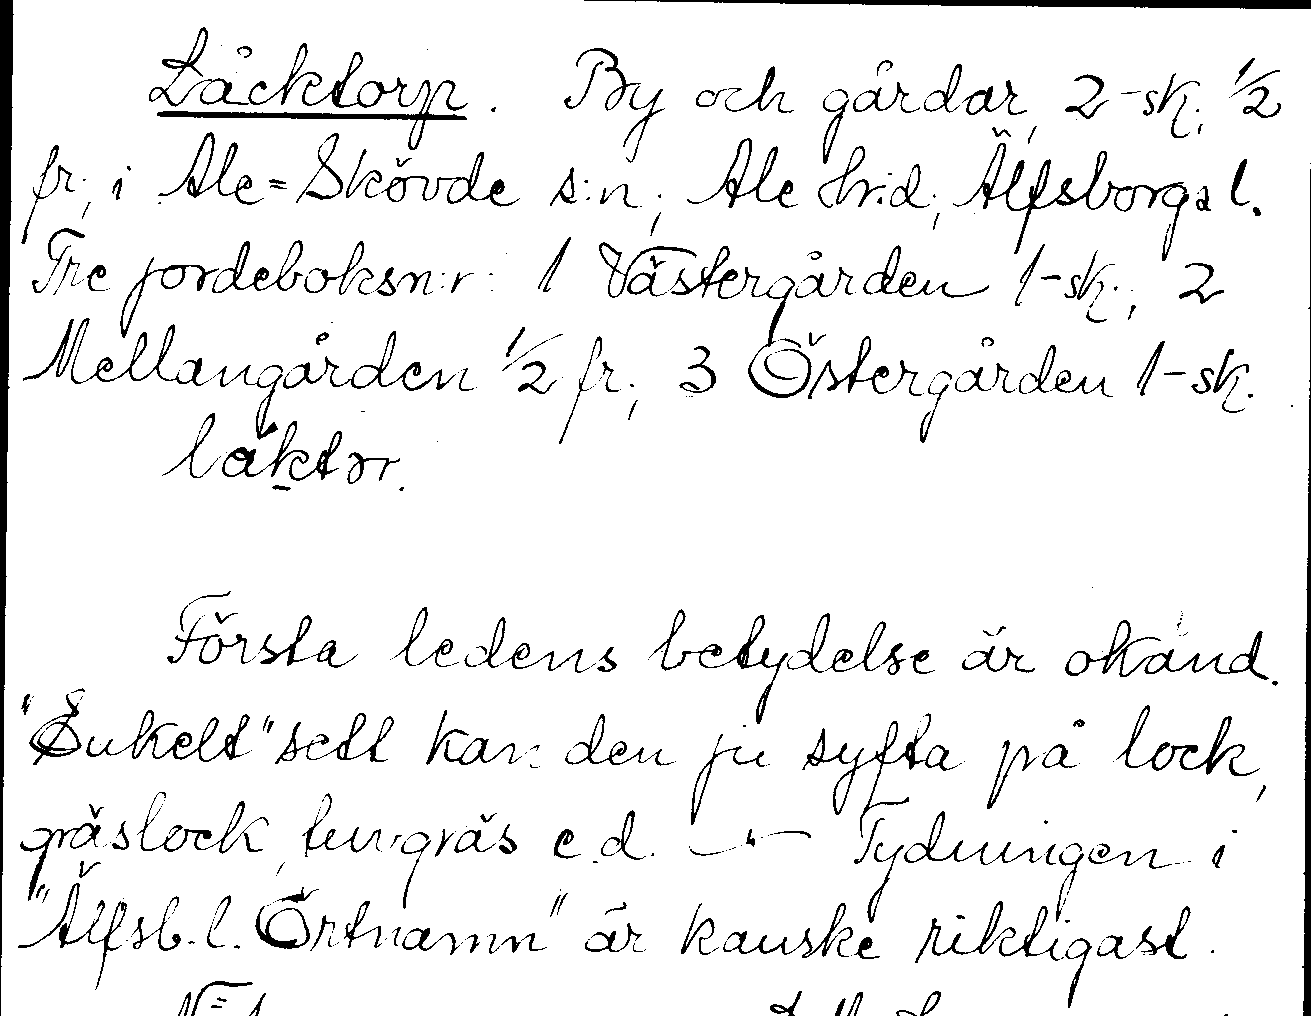 Läcktorp. By och gårdar, 2-sk; 1/2
fr; i Ale=Skövde s:n; Ale hrd; Älfsborgs l.
Tre jordeboksn:r: 1 Västergården 1-sk.; 2
Mellangården 1/2 fr; 3 Östergården 1-sk.
läktɔr.
Första ledens betydelse är okänd.
"Enkelt" sett kan den ju syfta på lock,
gräslock, tuvgräs e.d. — " — Tydningen i
"Älfsb. l. Ortnamn" är kanske riktigast.